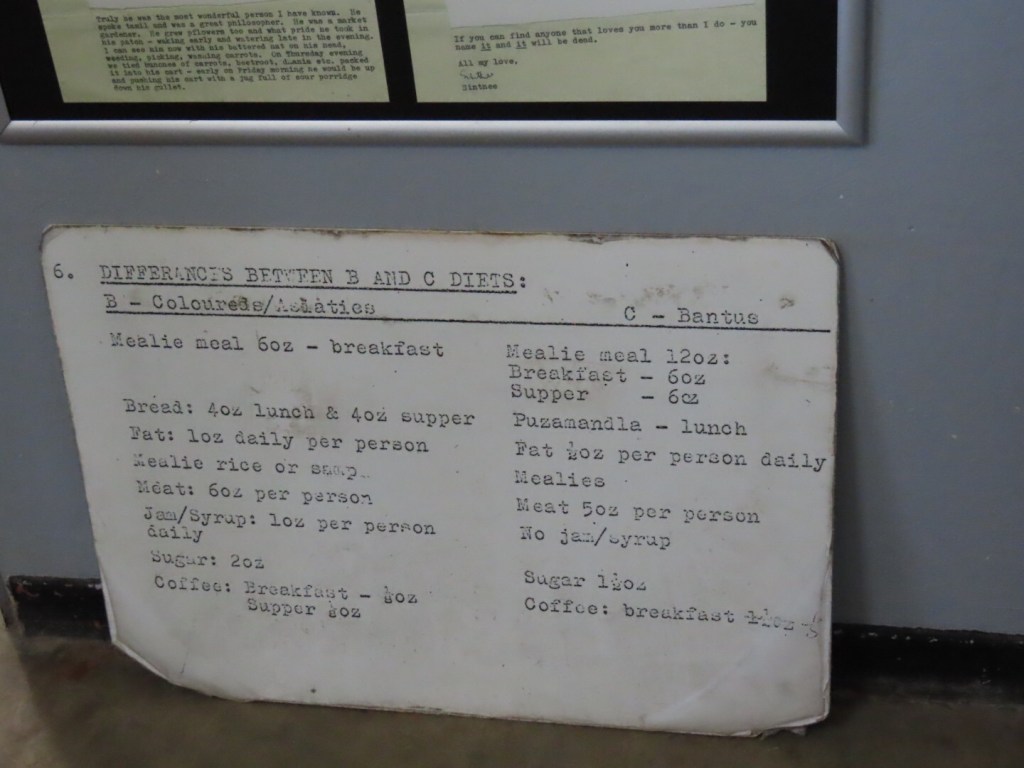 Truly he was the most wonderful person I have known. He
spoke tamil and was a great philosopher. He was a market
gardener. He grew pflowers too and what pride he took in
his paten - waking early and watering late in the evening.
I can see him now with his tattered hat on his head,
weeding, picking, washing carrots. On Thursday evening
we tied bunches of carrots, beetroot, dhania etc. packed
it into his cart - early on Friday morning he would be up
and pushing his cart with a jug full of sour porridge
down his gullet.
If you can find anyone that loves you more than I do - you
name it and it will be dead.
All my love,
Sinthee
6. DIFFERANCES BETWEEN B AND C DIETS:
B - Coloureds/Asiatics C - Bantus
Mealie meal 6oz - breakfast
Mealie meal 12oz:
Breakfast - 6oz
Supper - 6oz
Bread: 4oz lunch & 4oz supper
Puzamandla - lunch
Fat: 1oz daily per person
Fat ½oz per person daily
Mealie rice or samp
Mealies
Meat: 6oz per person
Meat 5oz per person
Jam/Syrup: 1oz per person
daily
No jam/syrup
Sugar: 2oz
Sugar 1½oz
Coffee: Breakfast - ½oz
Supper ½oz
Coffee: breakfast